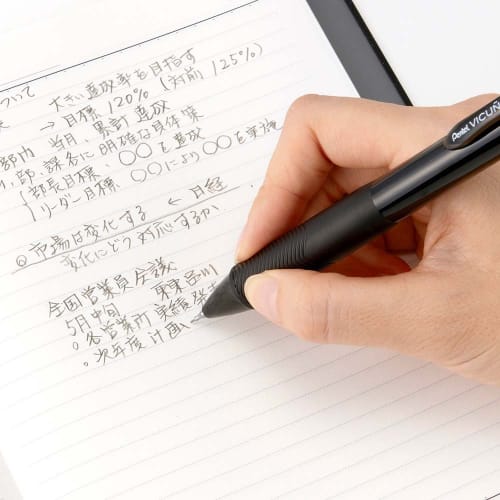 ついて
大きい達成率を目指す
→ 目標 120% (対前 125%)
当月、累計達成
部内
部、課名に明確な具体策
部長目標、〇〇を達成
リーダー目標、〇〇により〇〇を実施
◎市場は変化する ← 日経
変化にどう対応するか
全国営業員会議
5月中旬 東京品川
。各営業所 実績発
。次年度計画
Pentel VICUÑ